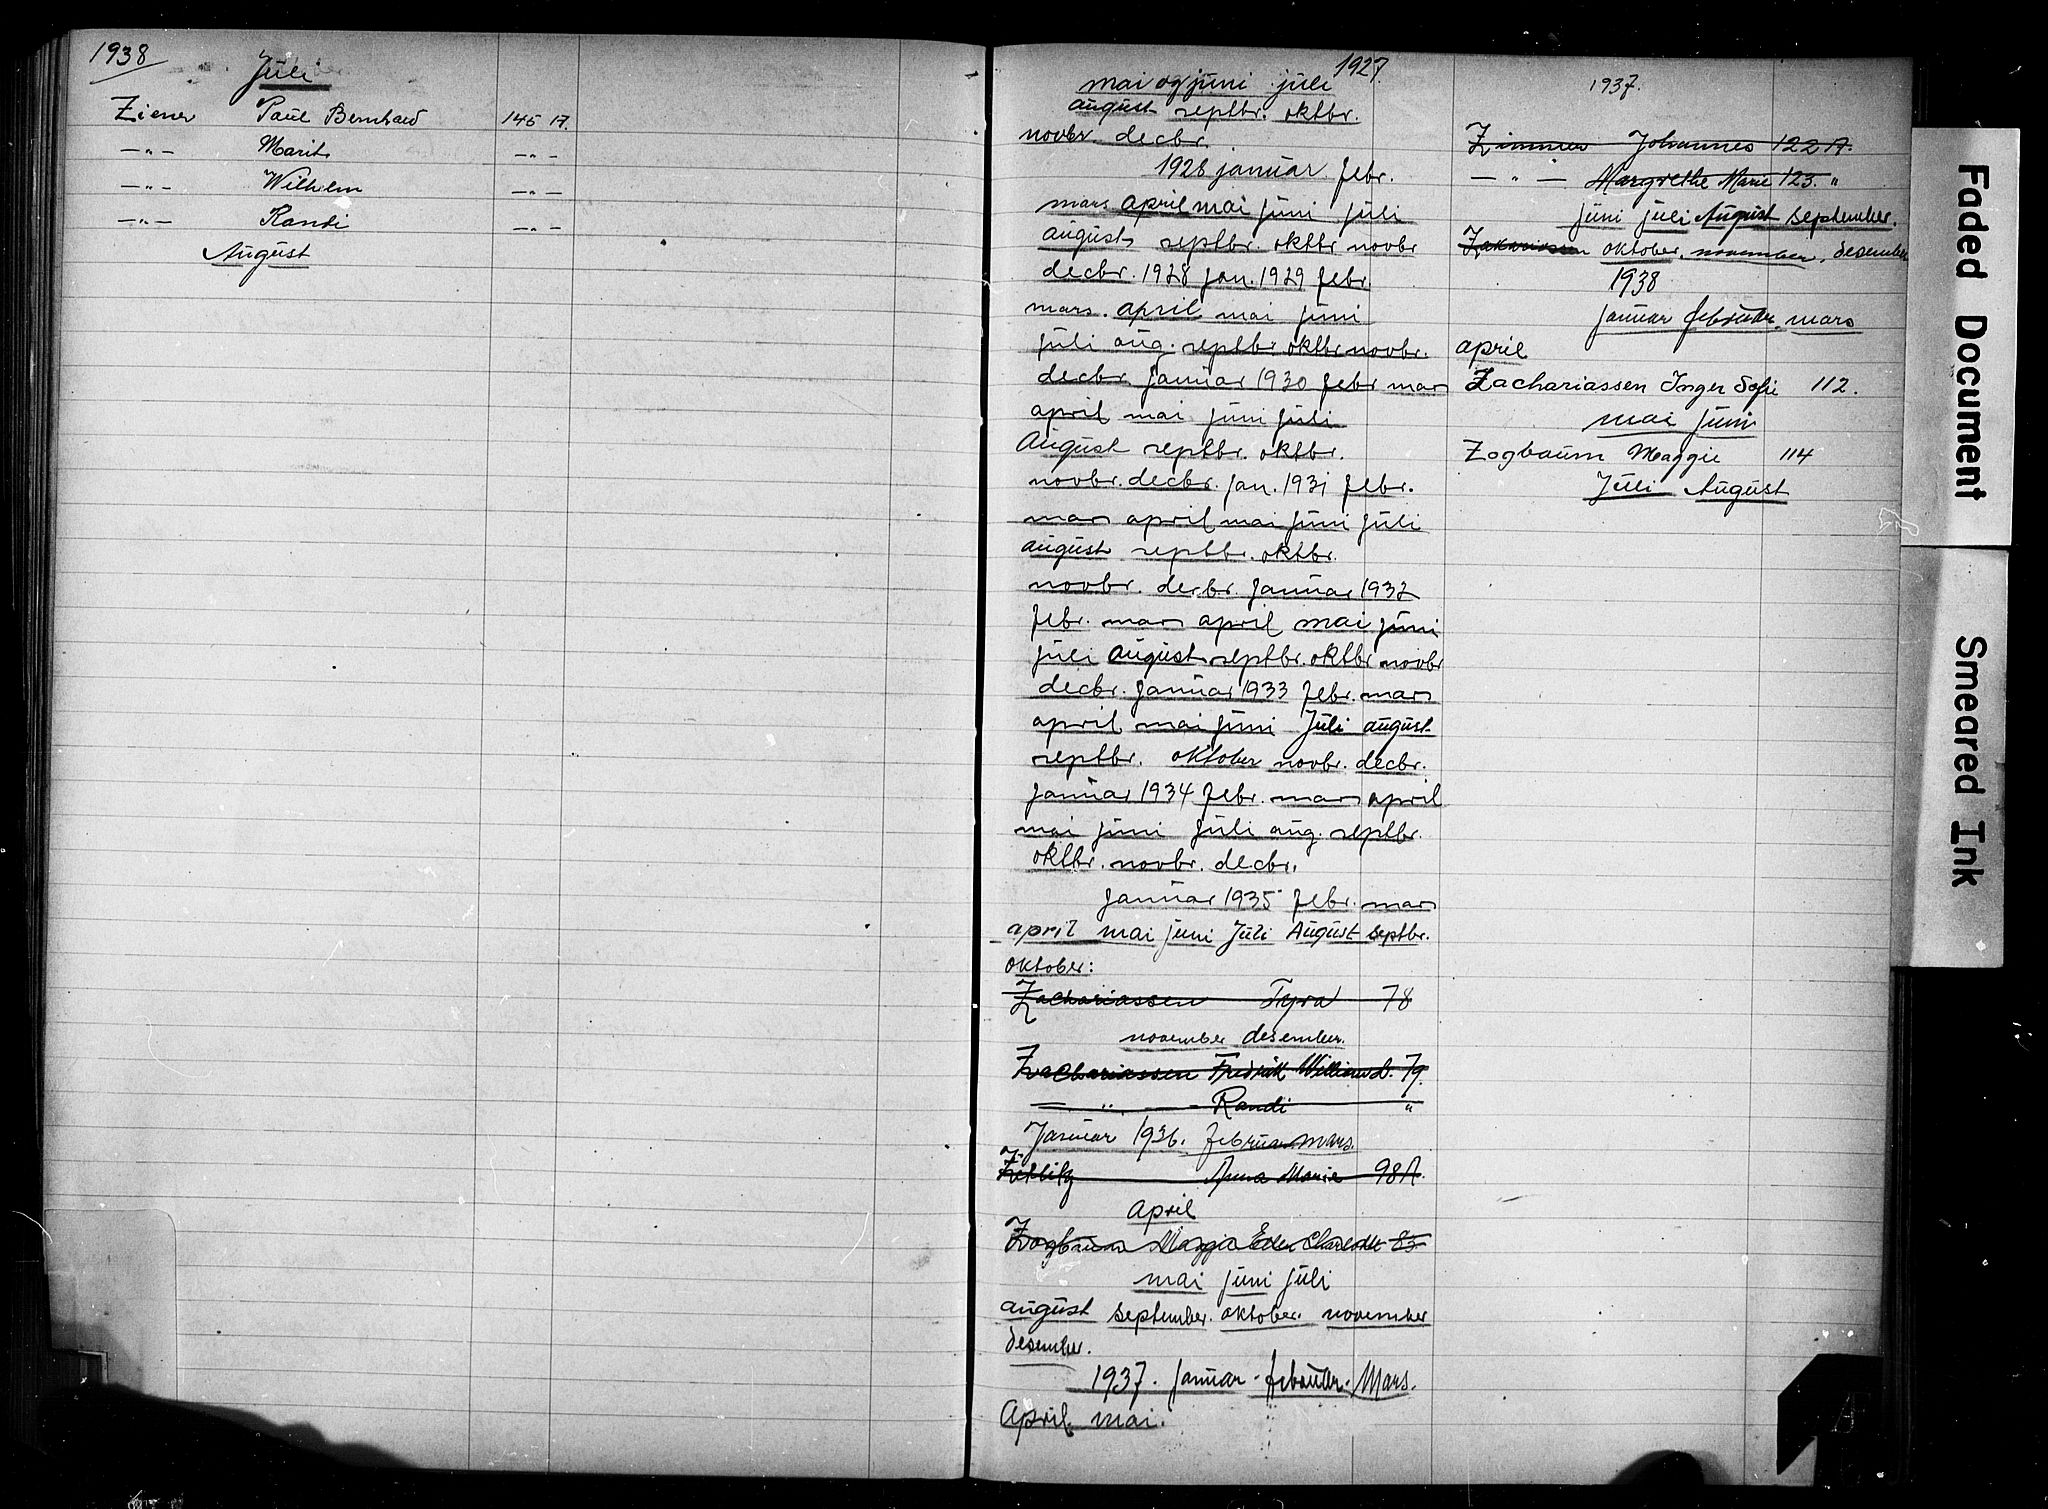 1938
Juli
Ziener Paul Bernhard 145 17.
—„— Marit —„—
—„— Wilhelm —„—
—„— Randi —„—
August
1927
mai og juni juli
august septbr. oktbr.
novbr. decbr.
1928 januar febr.
mars april mai juni juli
august septbr. oktbr novbr
decbr. 1928 jan. 1929 febr.
mars. april mai juni
juli aug. septbr oktbr novbr.
decbr. januar 1930 febr mars
april mai juni juli
August septbr. oktbr.
novbr. decbr. jan. 1931 febr.
mars april mai juni juli
august septbr. oktbr.
novbr. decbr. januar 1932
febr. mars april mai juni
juli august septbr. oktbr novbr
decbr. januar 1933 febr. mars
april mai juni Juli august
septbr. oktober novbr. decbr.
januar 1934 febr. mars april
mai juni juli aug. septbr.
oktbr. novbr. decbr.
januar 1935 febr. mars
april mai juni Juli August septbr.
oktober:
Zachariassen Tyra 78
november desember.
Zachariassen Fredrik 79.
—„— Randi „
Januar 1936. februar mars.
Anna Marie 98 A.
April
Zogbaum Charlotte 83
mai juni juli
august september. oktober. november
desember.
1937. Januar - februar. Mars.
April. mai.
1937.
Zimmer Johannes 122 A.
—„— Margrethe Marie 123. „
juni juli August september.
Zakariassen oktober. november. desember
1938
januar februar. mars
april
Zachariassen Inger Sofie 112.
mai juni
Zogbaum Maggie 114
Juli August
Faded Document
Smeared Ink